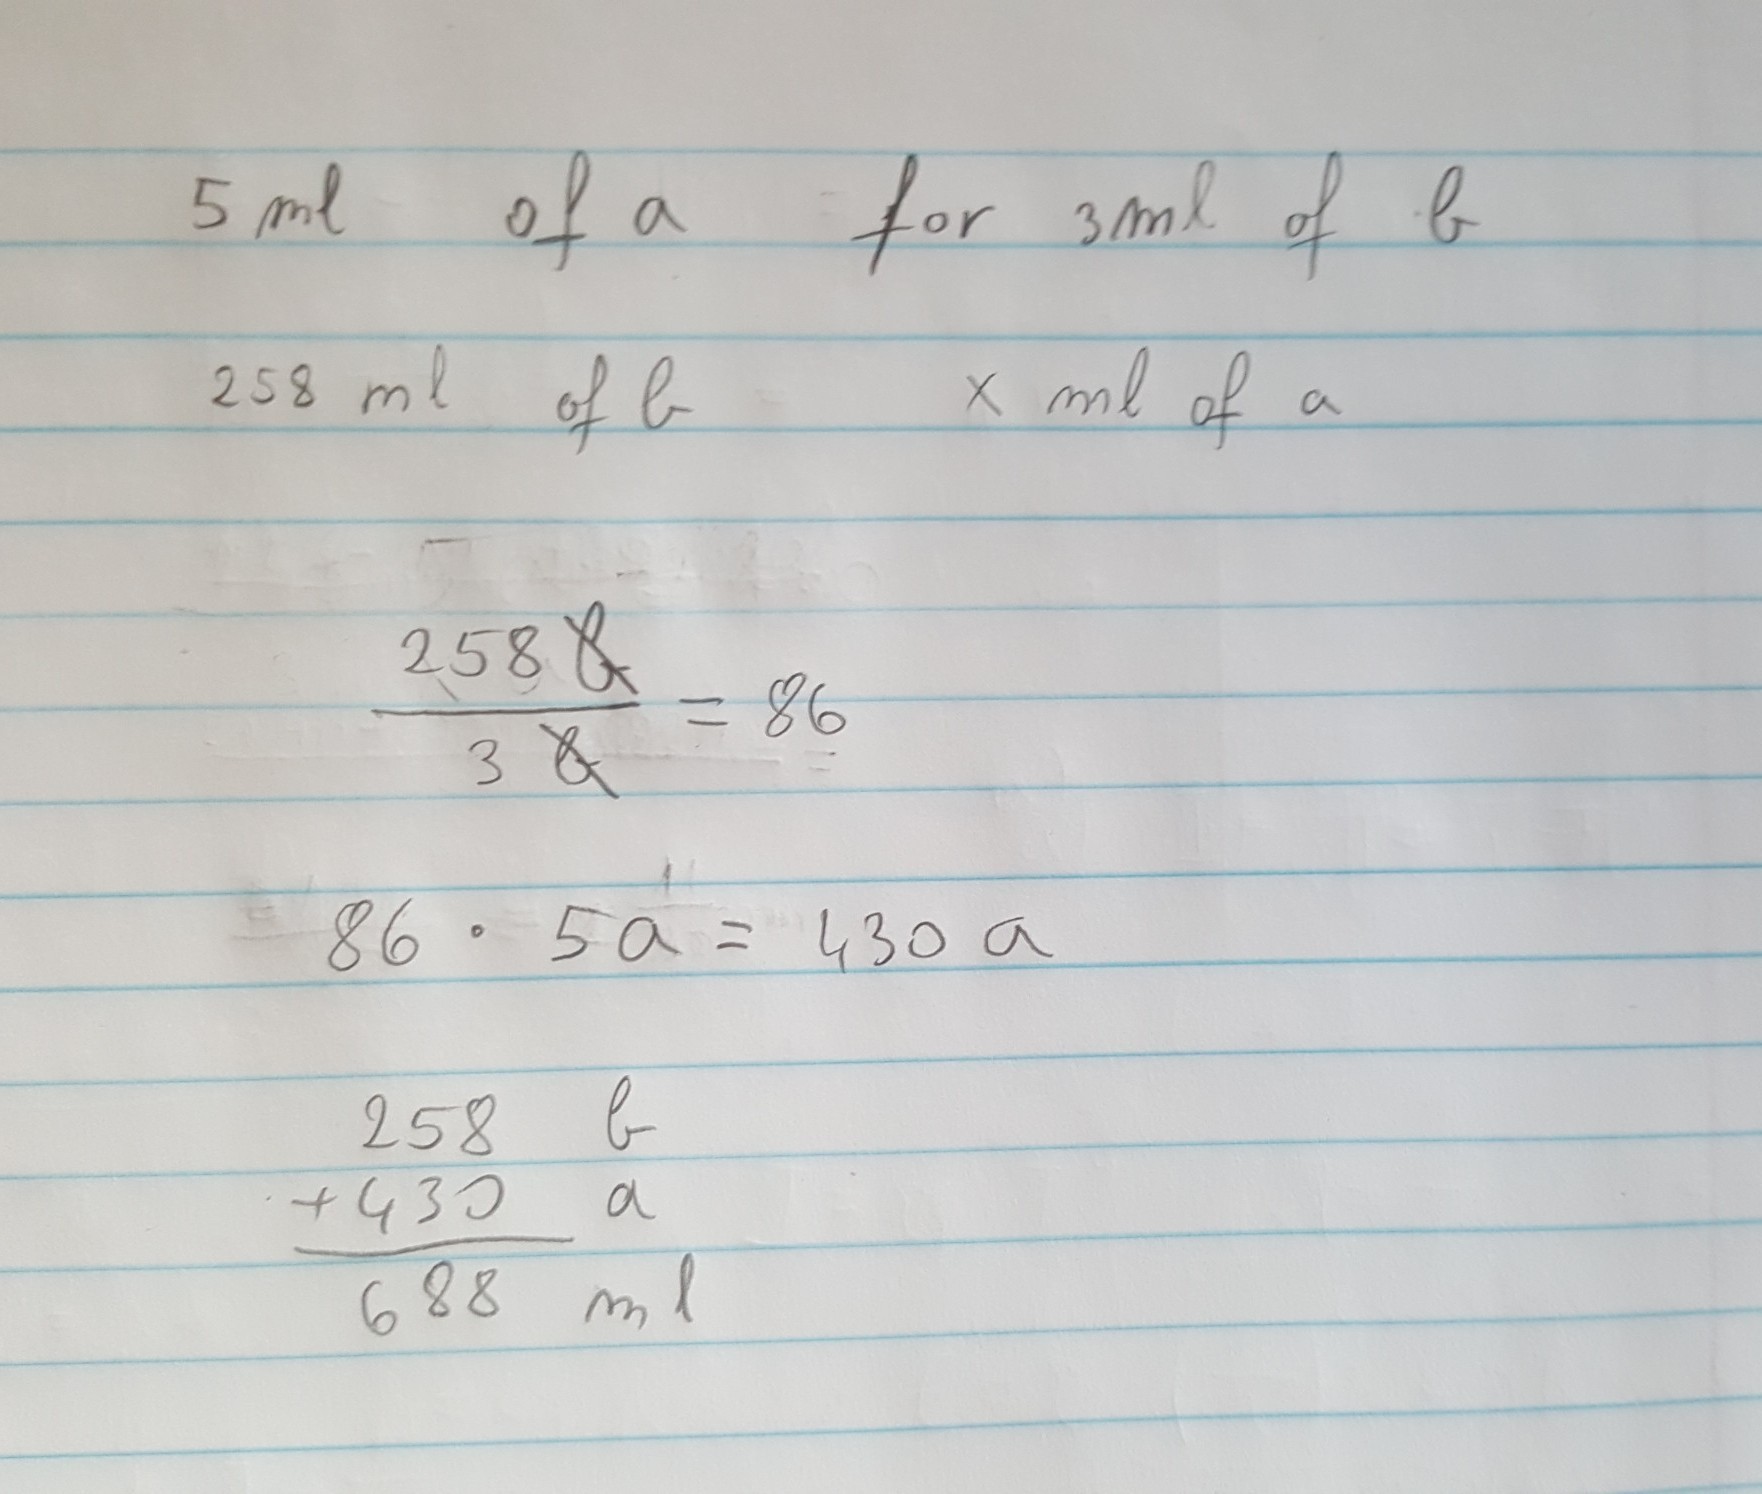 5 ml of a for 3 ml of b
258 ml of b x ml of a
258 b
3 b
= 86
86 · 5a = 430 a
258 b
+ 430 a
688 ml